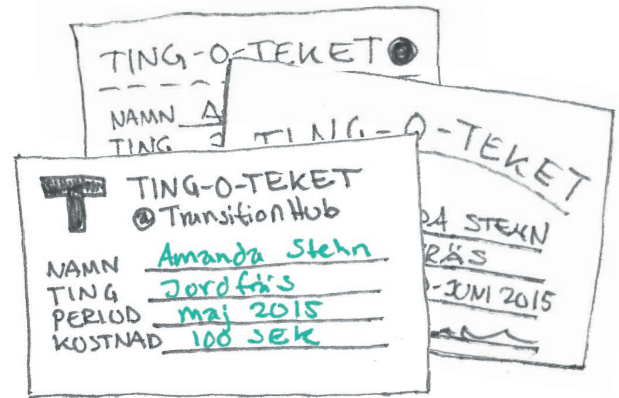 TING-O-TEKET @
NAMN A
TING J
TING-O-TEKET
DA STEHN
RÄS
-JUNI 2015
T TING-O-TEKET
@ TransitionHub
NAMN Amanda Stehn
TING Jordfräs
PERIOD maj 2015
KOSTNAD 100 SEK